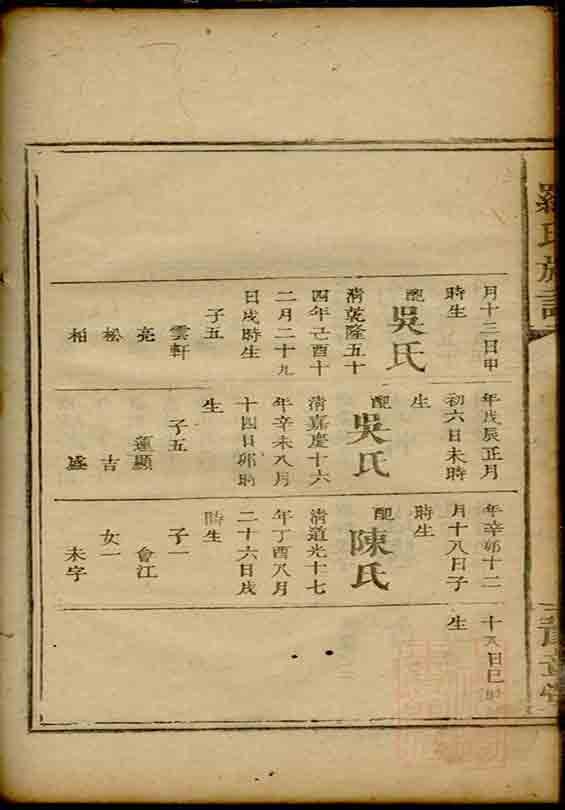 羅氏族譜
月十三日申
時生
配
吳氏
清乾隆五十
四年己酉十
二月二十九
日戌時生
子五
雲軒
亮
松
柏
年戊辰正月
初六日未時
生
配
吳氏
清嘉慶十六
年辛未八月
十四日卯時
生
子五
蓮顯
吉
盛
年辛卯十二
月十八日子
時生
配
陳氏
清道光十七
年丁酉八月
二十六日戌
時生
子一
會江
女一
未字
十八日巳時
生
豫章堂